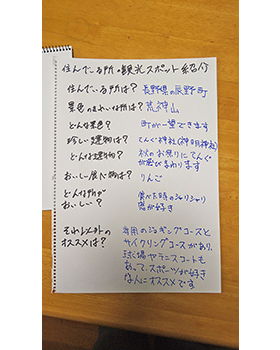 住んでいる所の観光スポット紹介
住んでいる所は? 長野県の辰野町
景色のきれいな所は? 荒神山
どんな景色? 町が一望できます
珍しい建物は? てんぐ神社(神明神社)
どんな建物? 秋のお祭りにてんぐ
が飛びまわります
おいしい食べ物は? りんご
どんな所が 食べた時のシャリシャリ
おいしい? 感が好き
それ以外の 専用のジョギングコースと
オススメは? サイクリングコースがあり、
球場やテニスコートも
あって、スポーツが好き
な人にオススメです